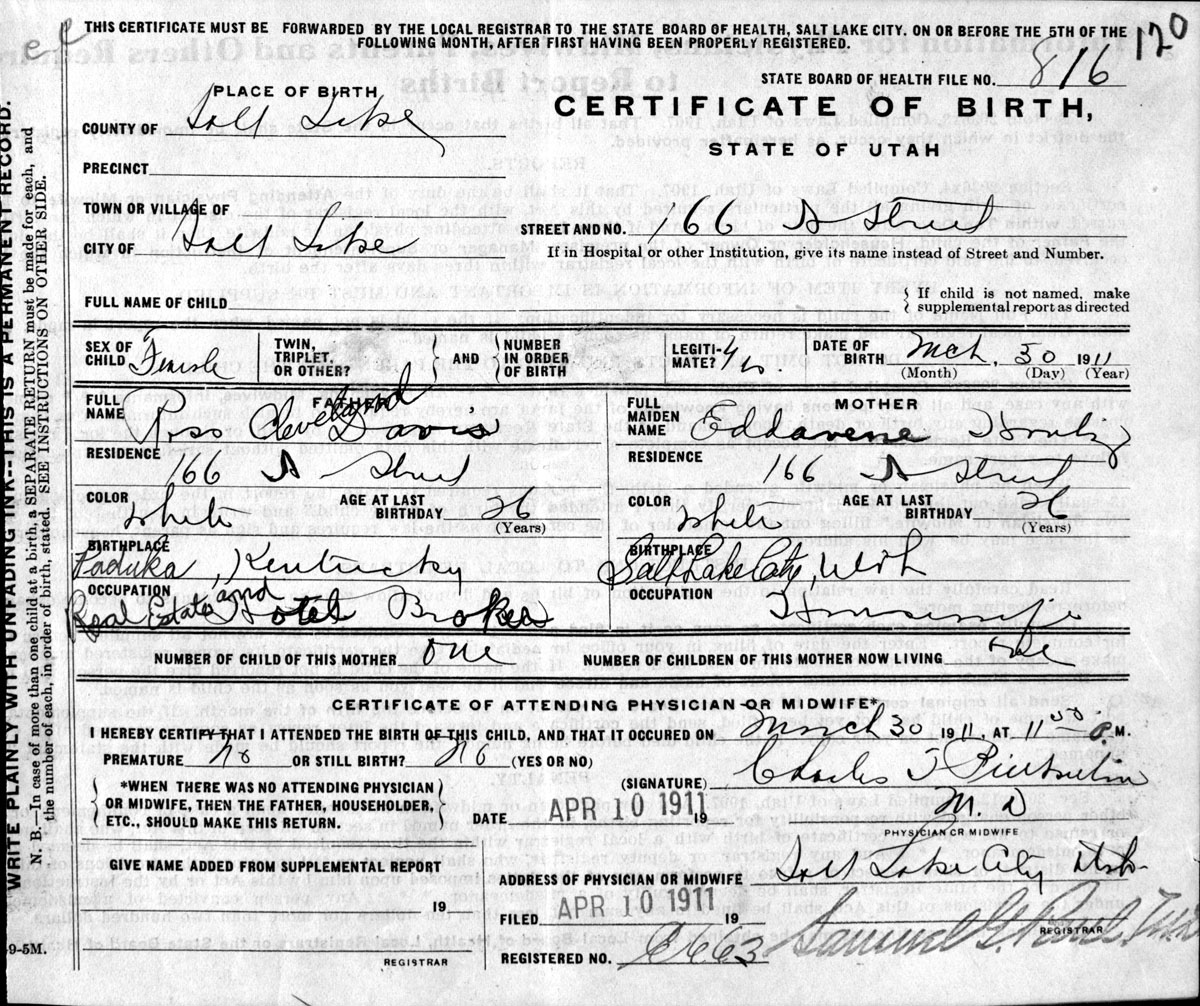 THIS CERTIFICATE MUST BE FORWARDED BY THE LOCAL REGISTRAR TO THE STATE BOARD OF HEALTH, SALT LAKE CITY. ON OR BEFORE THE 5TH OF THE
FOLLOWING MONTH, AFTER FIRST HAVING BEEN PROPERLY REGISTERED.
120
STATE BOARD OF HEALTH FILE NO. 816
PLACE OF BIRTH
CERTIFICATE OF BIRTH,
STATE OF UTAH
COUNTY OF Salt Lake
PRECINCT
TOWN OR VILLAGE OF
CITY OF Salt Lake
STREET AND NO. 166 A Street
If in Hospital or other Institution, give its name instead of Street and Number.
FULL NAME OF CHILD
{ If child is not named, make
supplemental report as directed
SEX OF CHILD Female
TWIN, TRIPLET, OR OTHER?
AND
NUMBER IN ORDER OF BIRTH
LEGITIMATE?
DATE OF BIRTH Mch 30 1911
(Month) (Day) (Year)
FATHER
FULL NAME Ross Cleveland Davis
RESIDENCE 166 A Street
COLOR White
AGE AT LAST BIRTHDAY 26
(Years)
BIRTHPLACE
Paduka, Kentucky
OCCUPATION
Real Estate and Hotel Broker
MOTHER
FULL MAIDEN NAME Eddavene
RESIDENCE 166 A Street
COLOR White
AGE AT LAST BIRTHDAY 26
(Years)
BIRTHPLACE
Salt Lake City, Utah
OCCUPATION Housewife
NUMBER OF CHILD OF THIS MOTHER One
NUMBER OF CHILDREN OF THIS MOTHER NOW LIVING One
CERTIFICATE OF ATTENDING PHYSICIAN OR MIDWIFE*
I HEREBY CERTIFY THAT I ATTENDED THE BIRTH OF THIS CHILD, AND THAT IT OCCURED ON March 30 1911, AT 11 50 a. M.
PREMATURE No OR STILL BIRTH? No (YES OR NO)
{ *WHEN THERE WAS NO ATTENDING PHYSICIAN
OR MIDWIFE, THEN THE FATHER, HOUSEHOLDER,
ETC., SHOULD MAKE THIS RETURN. }
(SIGNATURE) Charles T
M. D
PHYSICIAN OR MIDWIFE
DATE APR 10 1911 19
GIVE NAME ADDED FROM SUPPLEMENTAL REPORT
19
REGISTRAR
ADDRESS OF PHYSICIAN OR MIDWIFE Salt Lake City Utah
FILED APR 10 1911 19
REGISTERED NO.
Samuel G.
REGISTRAR
9-5M.
WRITE PLAINLY WITH UNFADING INK--THIS IS A PERMANENT RECORD.
N. B.—In case of more than one child at a birth, a SEPARATE RETURN must be made for each, and
the number of each, in order of birth, stated. SEE INSTRUCTIONS ON OTHER SIDE.